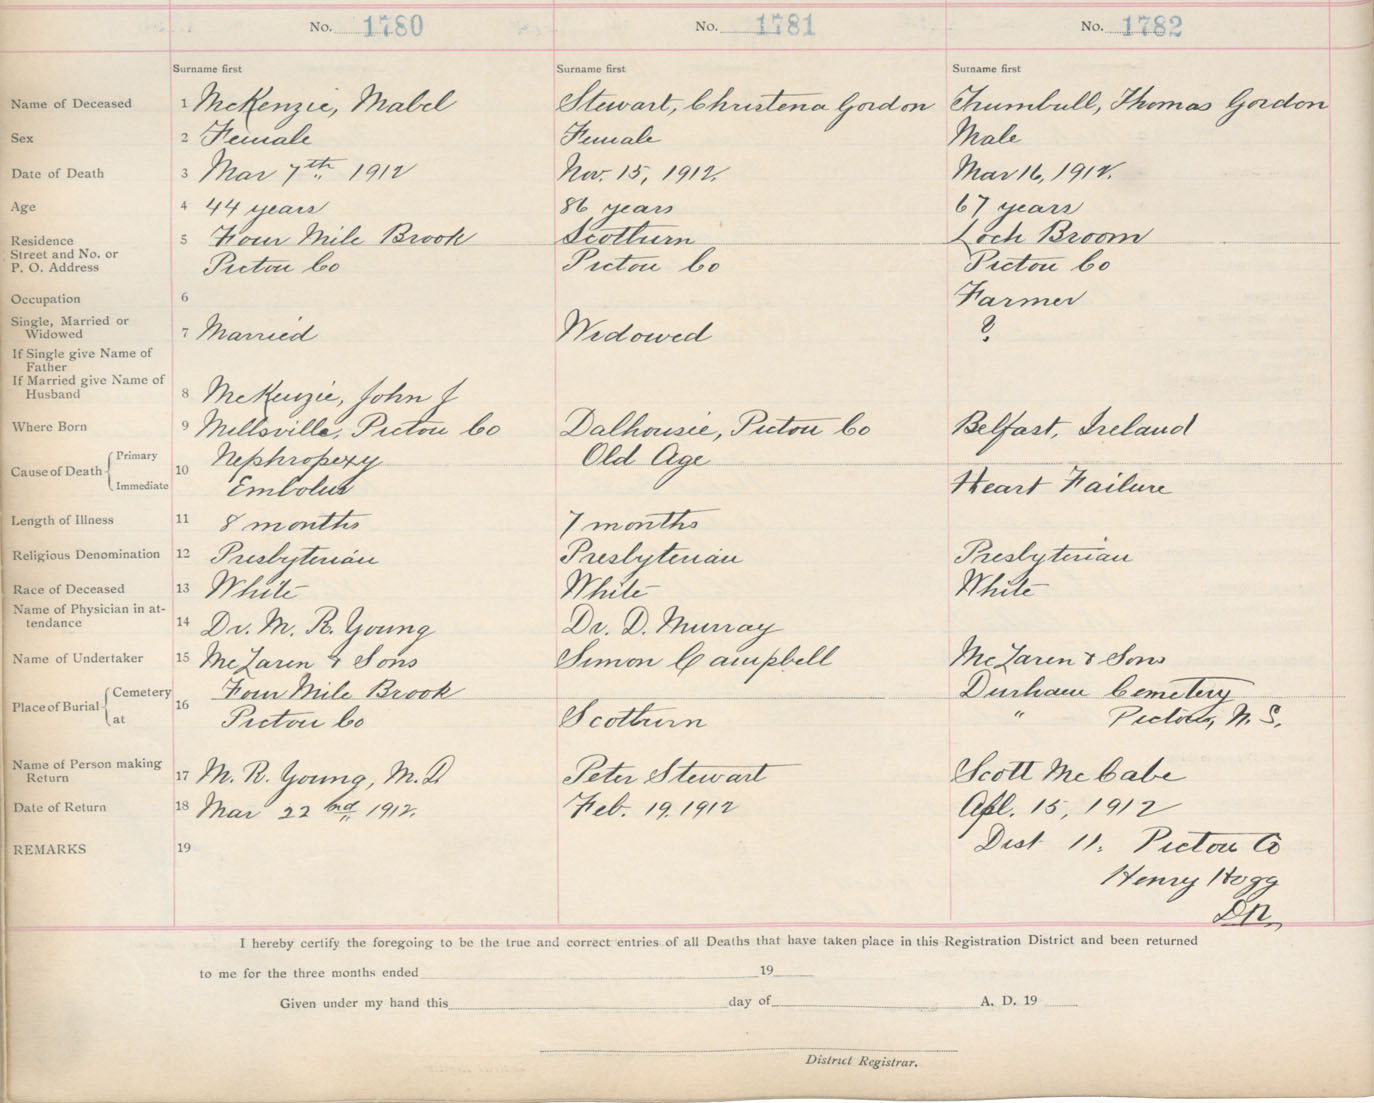 No. 1780 No. 1781 No. 1782
Surname first Surname first Surname first
Name of Deceased 1 McKenzie, Mabel Stewart, Christena Gordon Trumbull, Thomas Gordon
Sex 2 Female Female Male
Date of Death 3 Mar 7th 1912 Nov. 15, 1912. Mar 16, 1912.
Age 4 44 years 86 years 67 years
Residence 5 Four Mile Brook Scotburn Loch Broom
Street and No. or
P. O. Address Pictou Co Pictou Co Pictou Co
Occupation 6 Farmer
Single, Married or
Widowed 7 Married Widowed ?
If Single give Name of
Father
If Married give Name of
Husband 8 McKenzie, John J
Where Born 9 Millsville, Pictou Co Dalhousie, Pictou Co Belfast, Ireland
Cause of Death Primary 10 Nephropexy Old Age
Immediate Embolus Heart Failure
Length of Illness 11 8 months 7 months
Religious Denomination 12 Presbyterian Presbyterian Presbyterian
Race of Deceased 13 White White White
Name of Physician in at-
tendance 14 Dr. M. R. Young Dr. D. Murray
Name of Undertaker 15 McLaren & Sons Simon Campbell McLaren & Sons
Place of Burial Cemetery 16 Four Mile Brook Durham Cemetery
at Pictou Co Scotburn " Pictou, N. S.
Name of Person making
Return 17 M. R. Young, M.D. Peter Stewart Scott McCabe
Date of Return 18 Mar 22nd 1912. Feb. 19. 1912 Apl. 15, 1912
REMARKS 19 Dist 11. Pictou Co
Henry Hogg
DR,
I hereby certify the foregoing to be the true and correct entries of all Deaths that have taken place in this Registration District and been returned
to me for the three months ended 19
Given under my hand this day of A. D. 19
District Registrar.